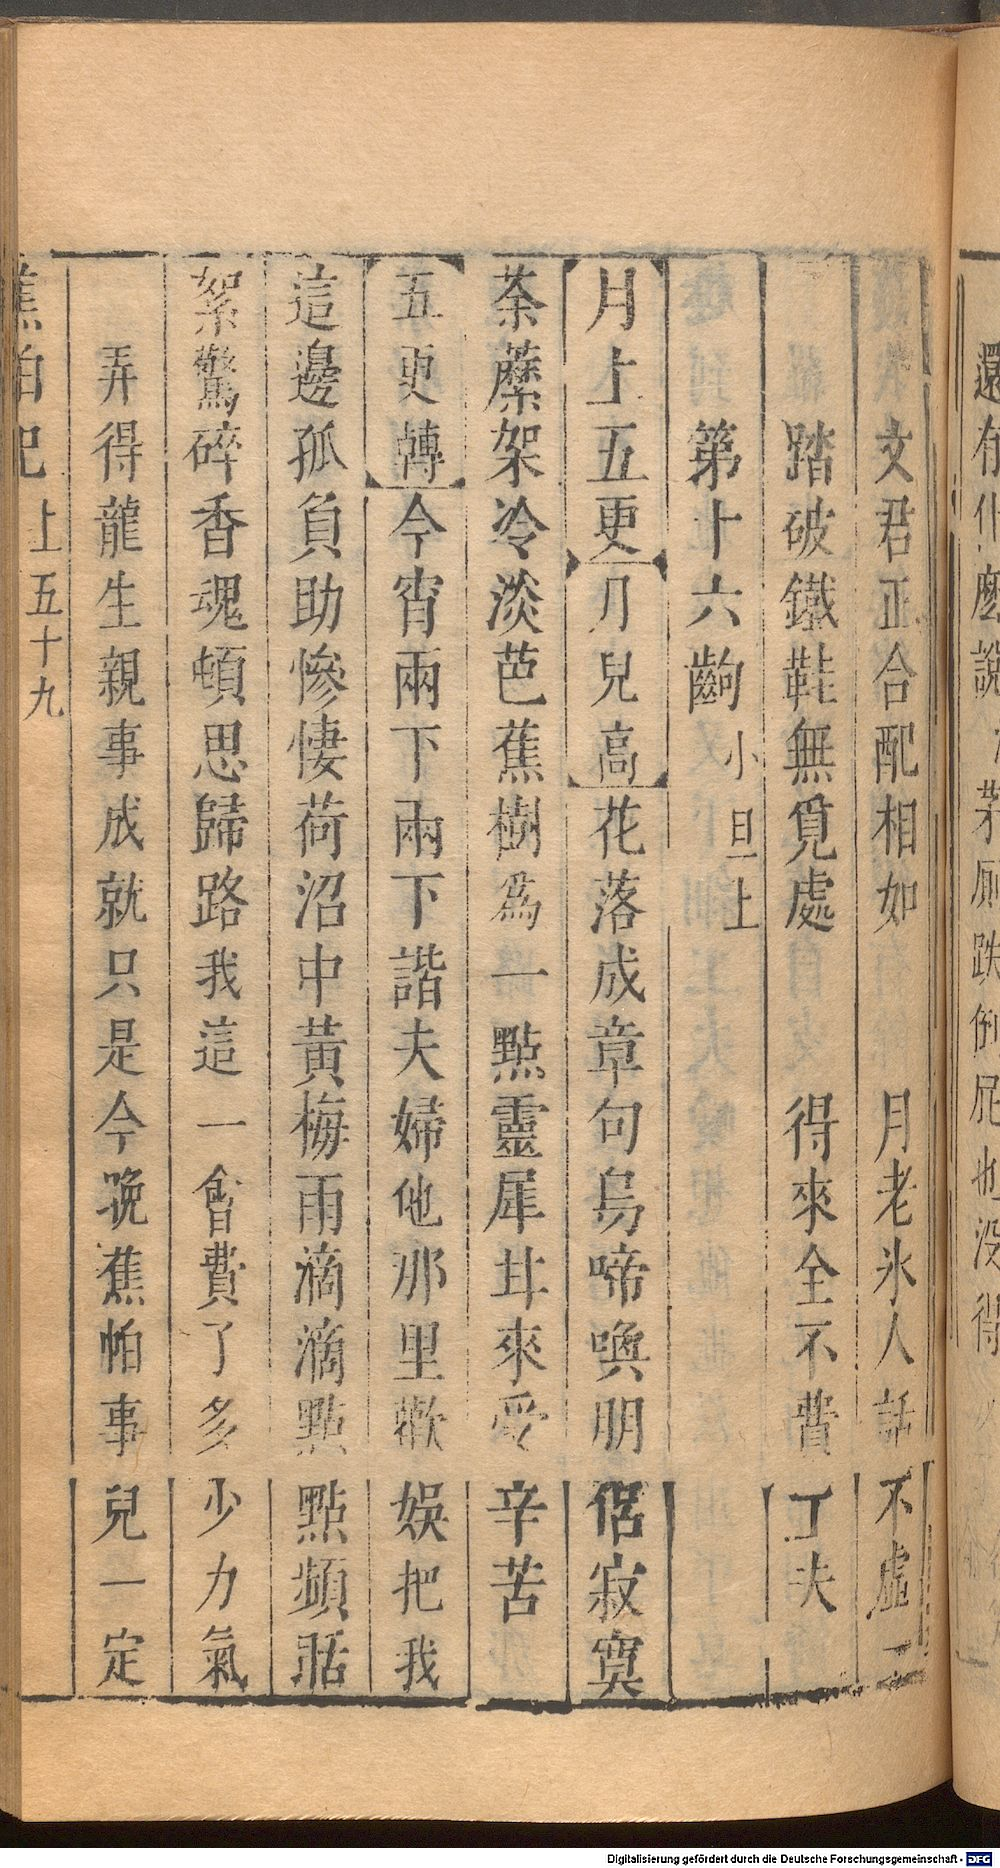 還有什麽說
茅厠跌倒屁也没得
文君正合配相如　月老氷人話不虛
踏破鐵鞋無覓處　得來全不費工夫
第十六齣 小旦上
月上五更 月兒高 花落成章句烏啼喚朋侶寂寞
荼蘼架冷淡芭蕉樹爲一點靈犀甘來受辛苦
五更轉 今宵兩下兩下諧夫婦他那里歡娛把我
這邊孤負助慘悽荷沼中黃梅雨滴滴點點頻聒
絮驚碎香魂頓思歸路我這一會費了多少力氣
弄得龍生親事成就只是今晚蕉帕事兒一定
蕉帕記 上 五十九
Digitalisierung gefördert durch die Deutsche Forschungsgemeinschaft - DFG